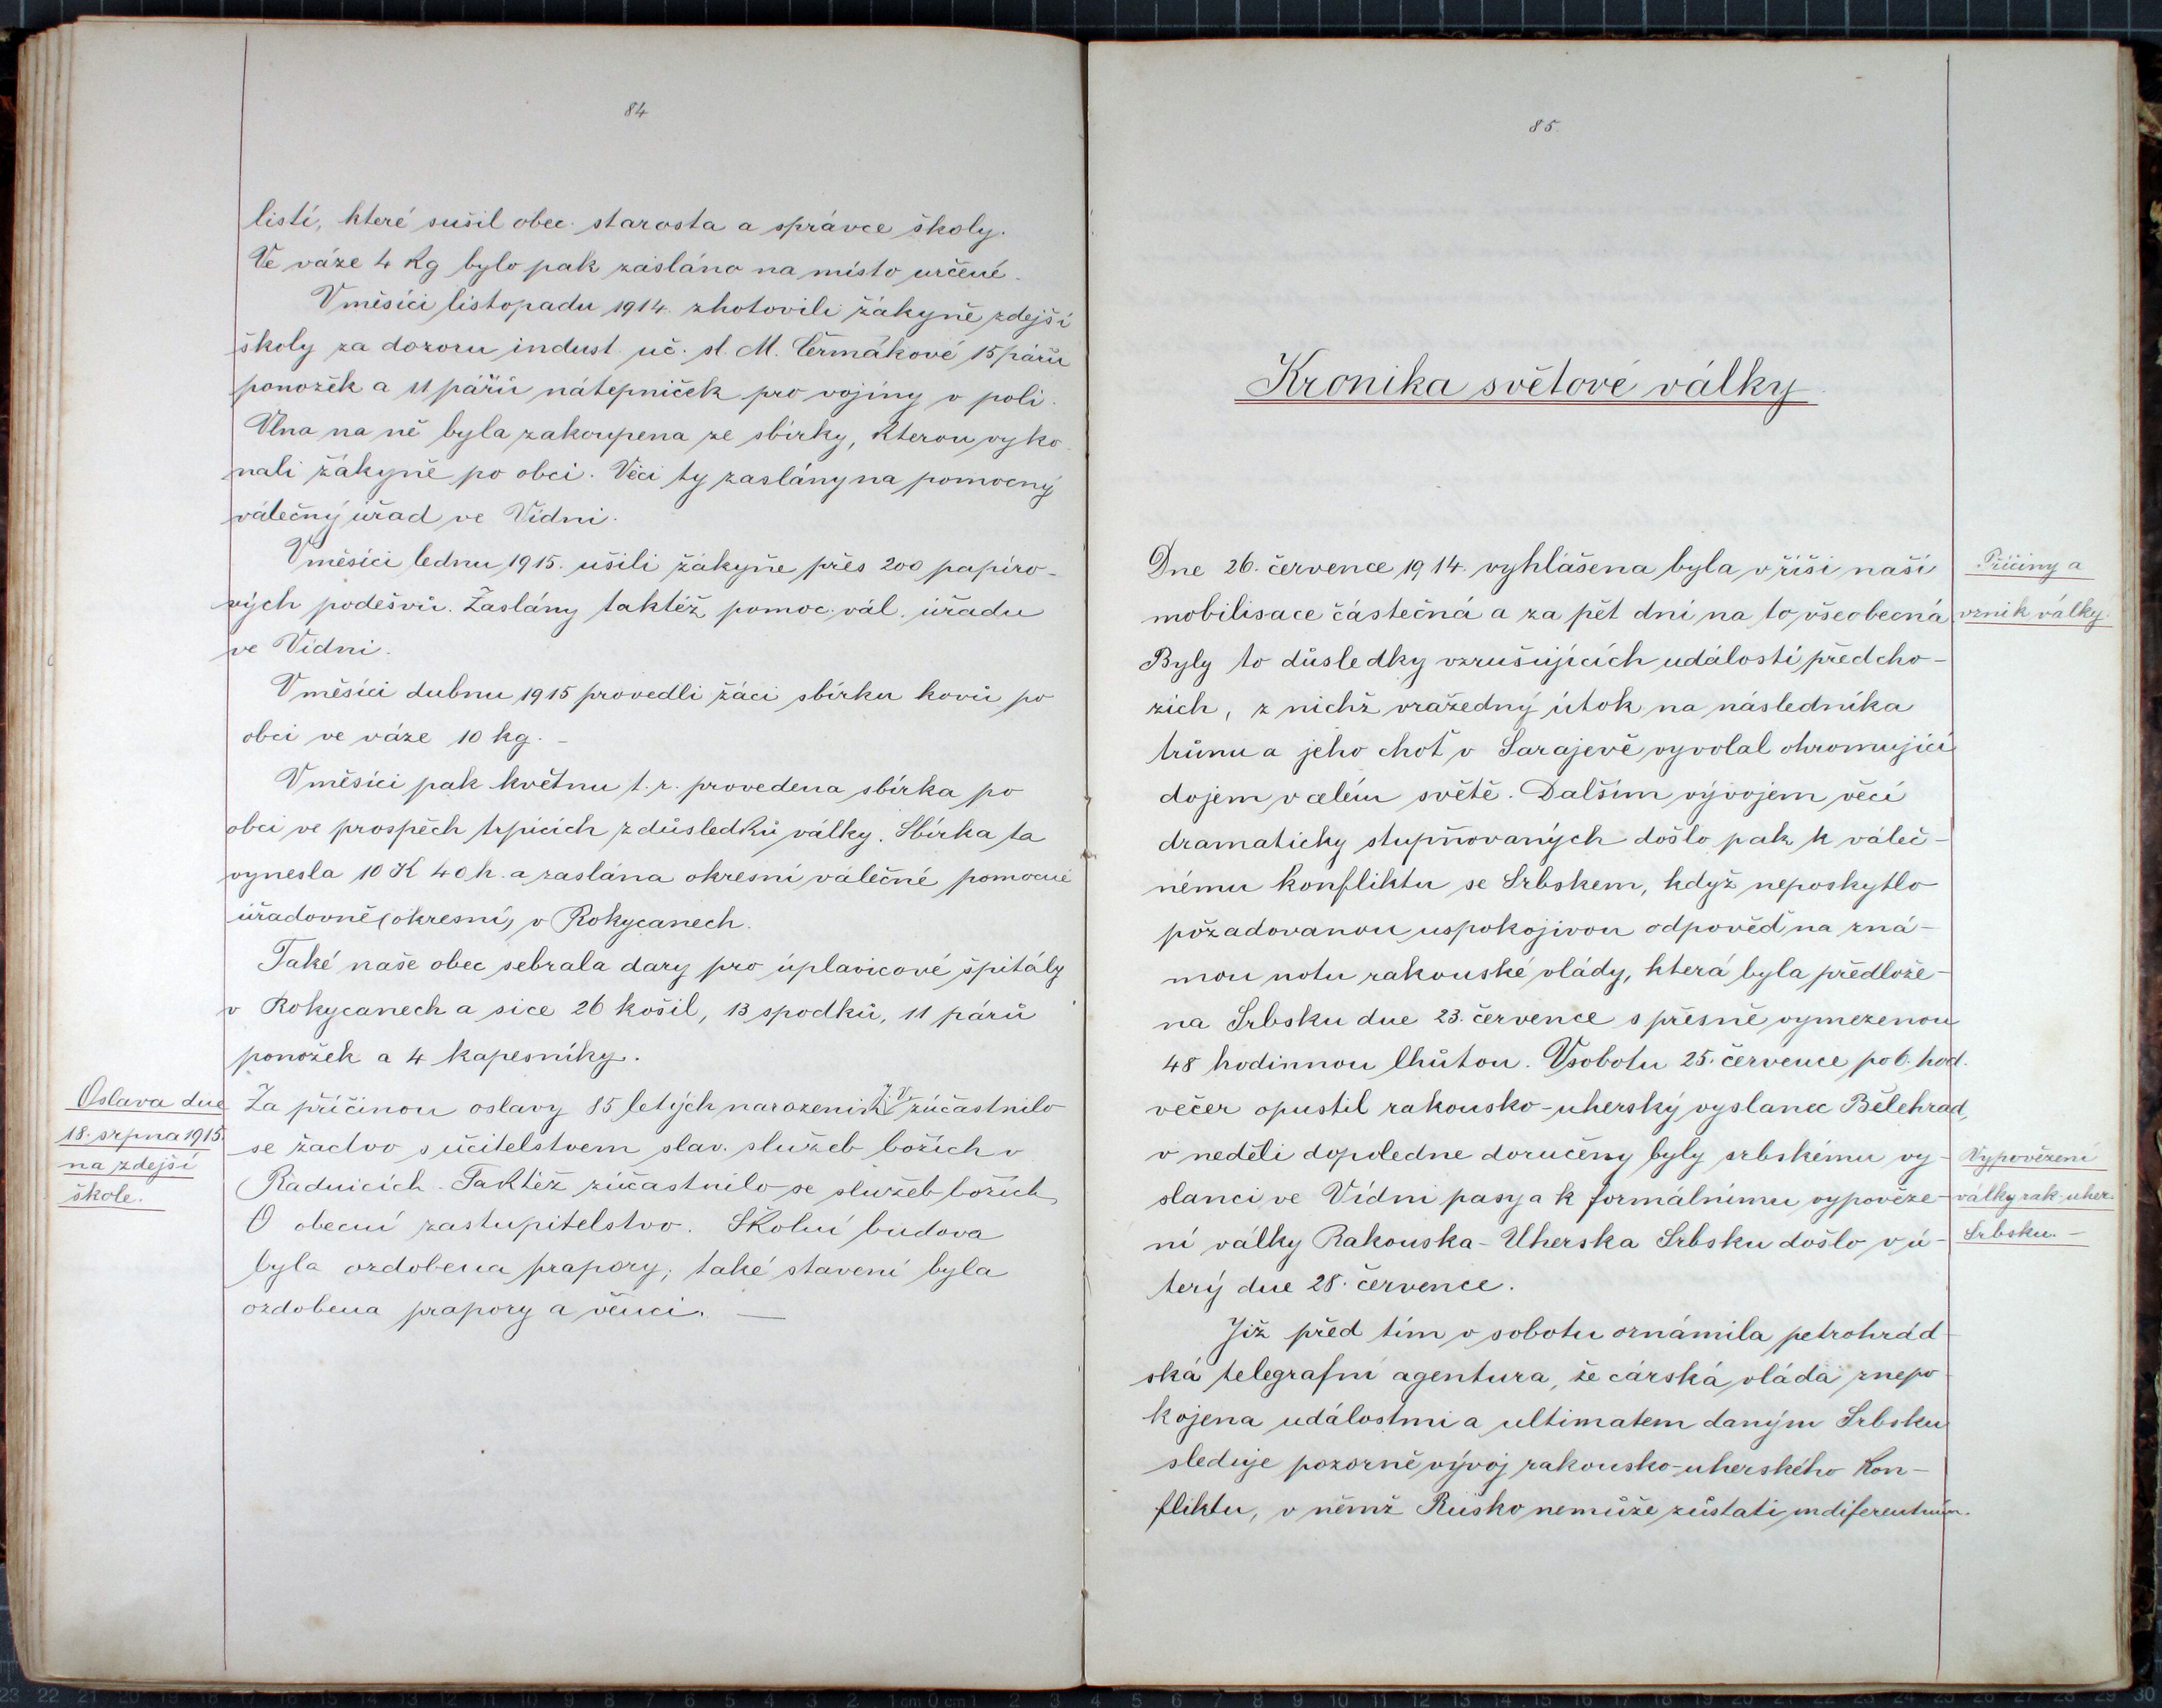 84
listí, které sušil obec. starosta a správce školy.
Ve váze 4 Kg bylo pak zasláno na místo určené.
V měsíci listopadu 1914. zhotovili žákyně zdejší
školy za dozoru indust. uč. sl. M. Čermákové 15 párů
ponožek a 11 párů nátepniček pro vojíny v poli.
Vlna na ně byla zakoupena ze sbírky, kterou vyko-
nali žákyně po obci. Věci ty zaslány na pomocný
válečný úřad ve Vídni.
V měsíci lednu 1915. ušili žákyně přes 200 papíro-
vých podešvů. Zaslány taktéž pomoc. vál. úřadu
ve Vídni.
V měsíci dubnu 1915 provedli žáci sbírku kovů po
obci ve váze 10 kg. -
V měsíci pak květnu t. r. provedena sbírka po
obci ve prospěch trpících z důsledků války. Sbírka ta
vynesla 10 K 40 h. a zaslána okresní válečné pomocné
úřadovně (okresní) v Rokycanech.
Také naše obec sebrala dary pro úplavicové špitály
v Rokycanech a sice 26 košil, 13 spodků, 11 párů
ponožek a 4 kapesníky.
Oslava dne
18. srpna 1915.
na zdejší
škole.
Za příčinou oslavy 85 letých narozenin J. V. zúčastnilo
se žactvo s učitelstvem slav. služeb božích v
Radnicích. Taktéž zúčastnilo se služeb božích
O obecní zastupitelstvo. Školní budova
byla ozdobena prapory; také stavení byla
ozdobena prapory a věnci. —
85.
Kronika světové války
Příčiny a
vznik války.
Dne 26. července 1914. vyhlášena byla v říši naší
mobilisace částečná a za pět dní na to všeobecná
Byly to důsledky vzrušujících událostí předcho-
zích, z nichž vražedný útok na následníka
trůnu a jeho choť v Sarajevě vyvolal ohromující
dojem v celém světě. Dalším vývojem věcí
dramaticky stupňovaných došlo pak k váleč-
nému konfliktu se Srbskem, když neposkytlo
požadovanou uspokojivou odpověď na zná-
mou notu rakouské vlády, která byla předlože-
na Srbsku dne 23. července s přesně vymezenou
48 hodinnou lhůtou. V sobotu 25. července po 6. hod.
večer opustil rakousko-uherský vyslanec Bělehrad,
v neděli dopoledne doručeny byly srbskému vy-
slanci ve Vídni pasy a k formálnímu vypověze-
ní války Rakouska-Uherska Srbsku došlo v ú-
terý dne 28. července.
Vypovězení
války rak-uher.
Srbsku. -
Již před tím v sobotu oznámila petrohrad-
ská telegrafní agentura, že cárská vláda znepo-
kojena událostmi a ultimatem daným Srbsku
sleduje pozorně vývoj rakousko-uherského kon-
fliktu, v němž Rusko nemůže zůstati indiferentním.